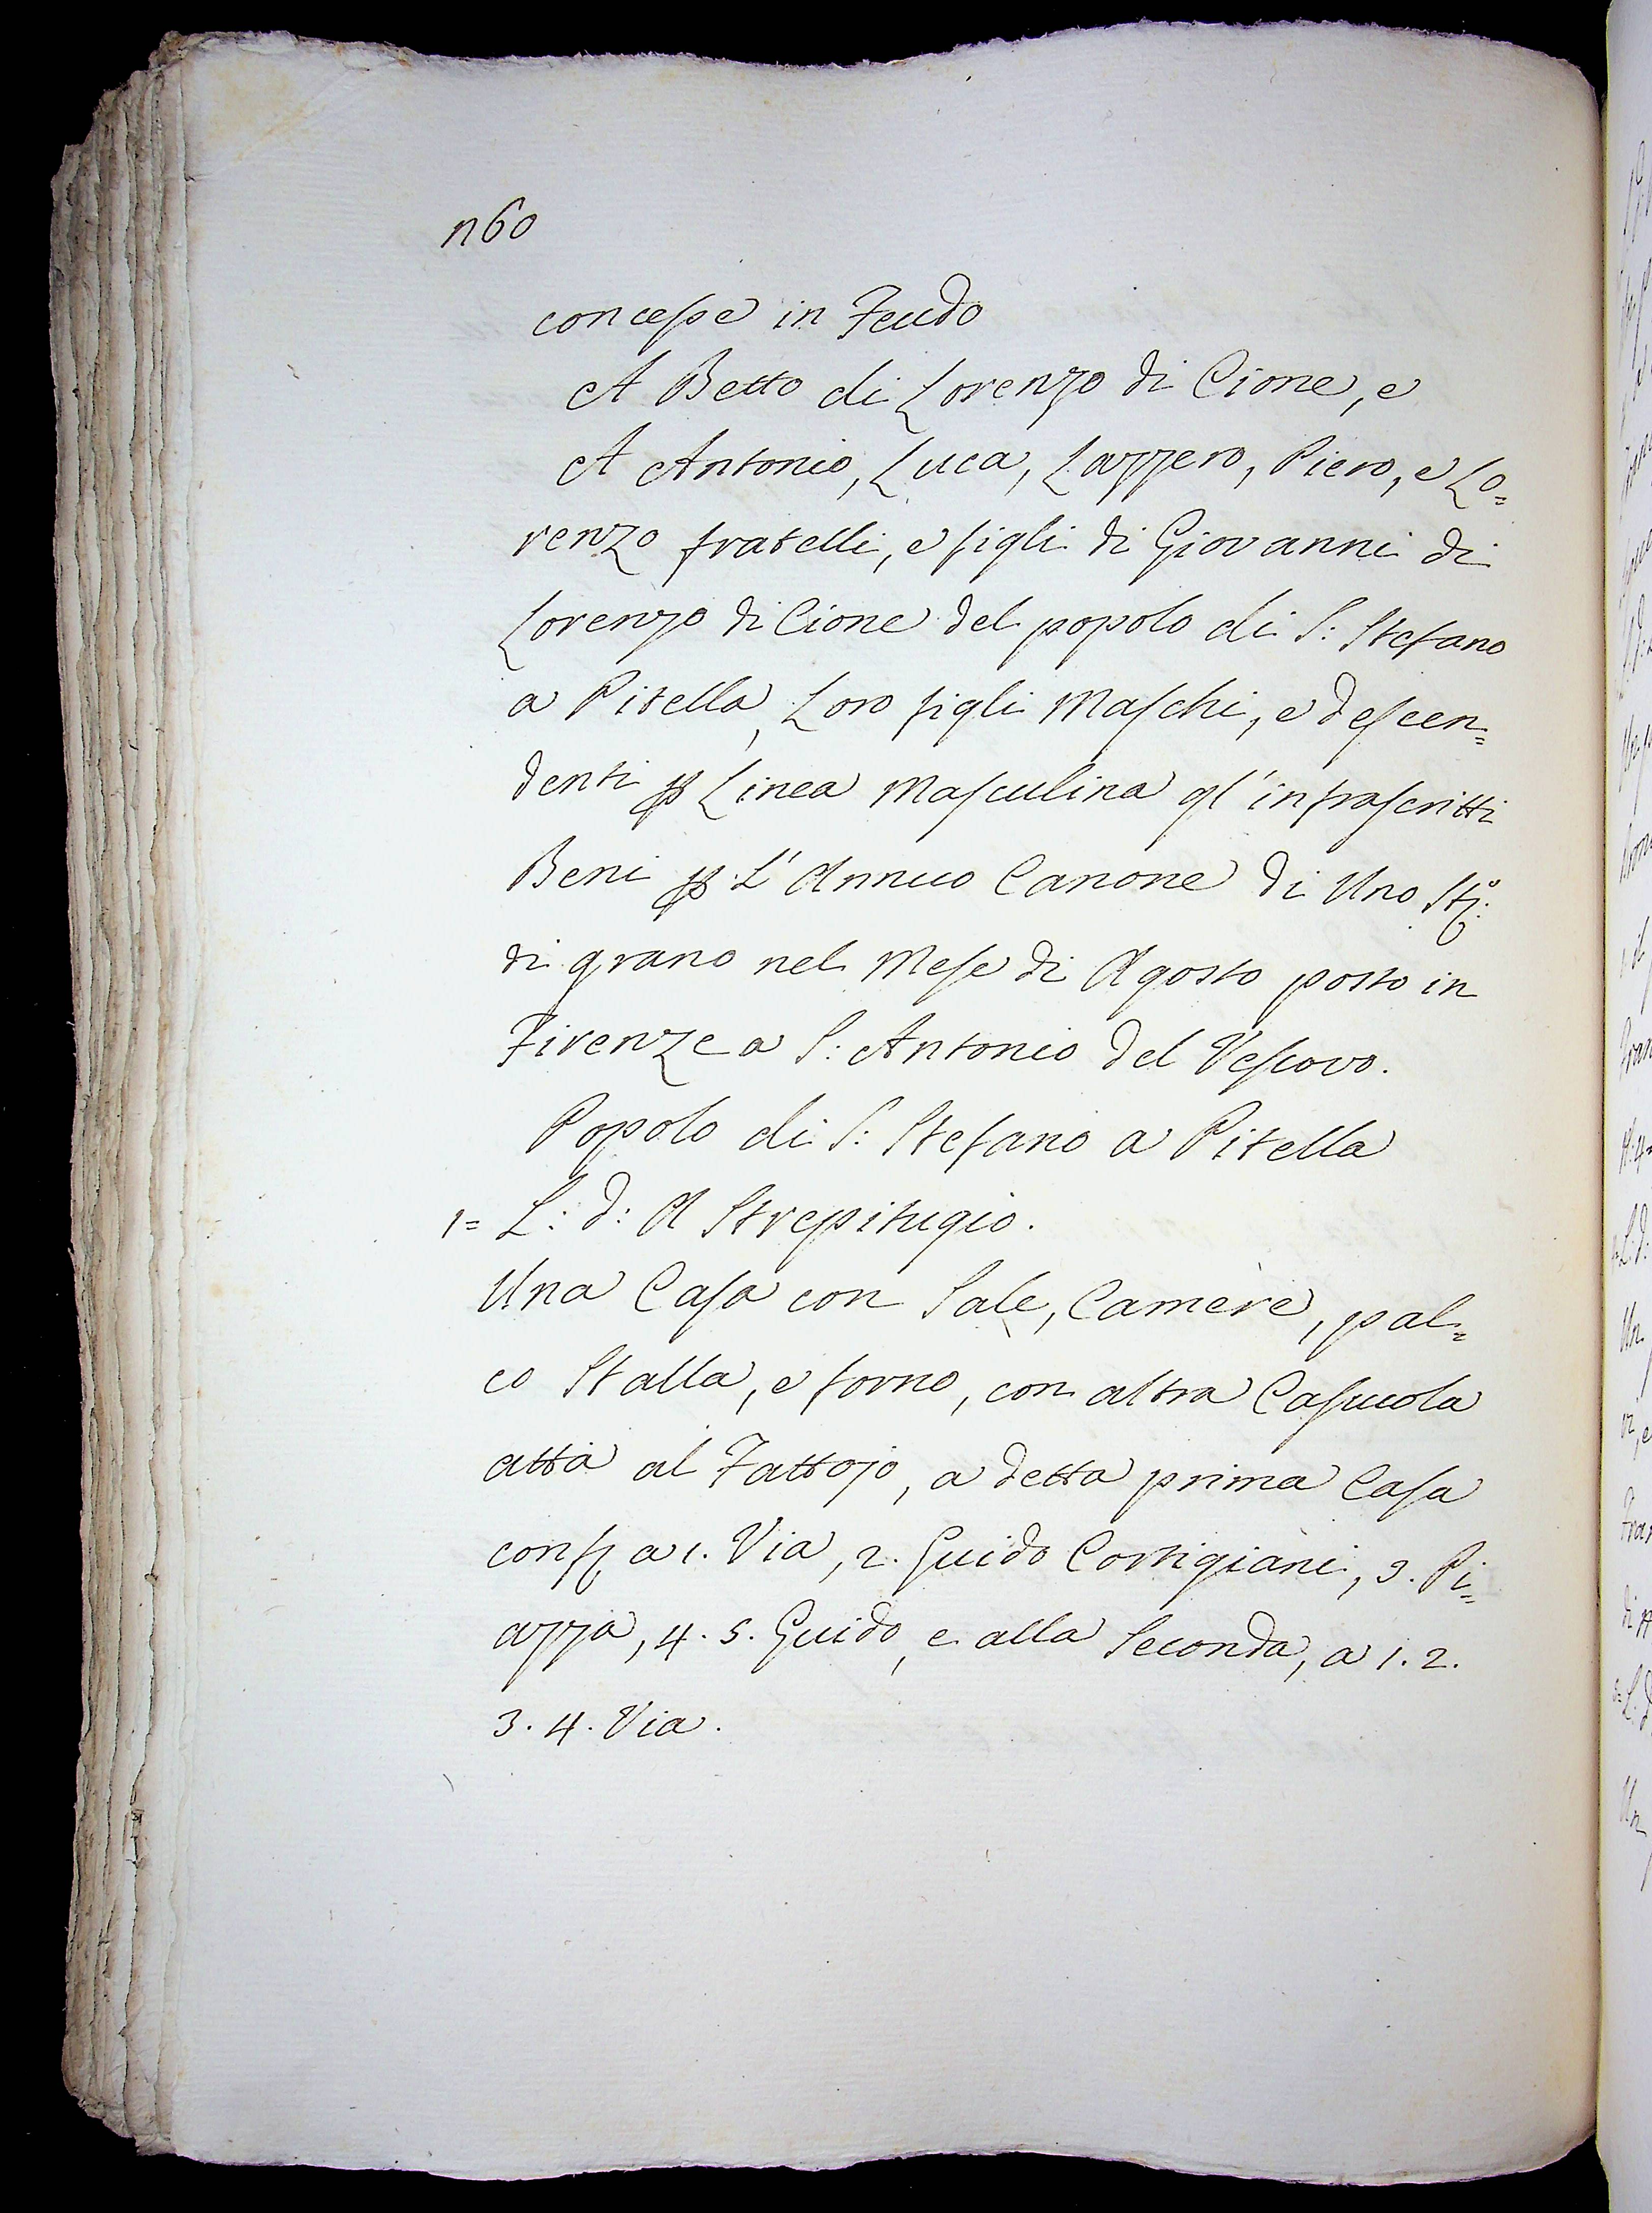 n60
concesse in Feudo
A Betto di Lorenzo di Cione, e
A Antonio, Luca, Lazzero, Piero, e Lo=
renzo fratelli, e figli di Giovanni di
Lorenzo di Cione del popolo di S: Stefano
a Pitella, Loro figli Maschi, e descen=
denti p Linea Masculina gl'infrascritti
Beni p L'Annuo Canone di Uno St:º
di grano nel Mese di Agosto posto in
Firenze a S: Antonio del Vescovo.
Popolo di S: Stefano a Pitella
1= L: d: A Strepitugio.
Una Casa con Sale, Camere, pal=
co Stalla, e forno, con altra Casuola
atta al Fattojo, a detta prima Casa
conf. a 1. Via, 2. Guido Cortigiani, 3. Pi=
azza, 4. 5. Guido, e alla Seconda, a 1. 2.
3. 4. Via.